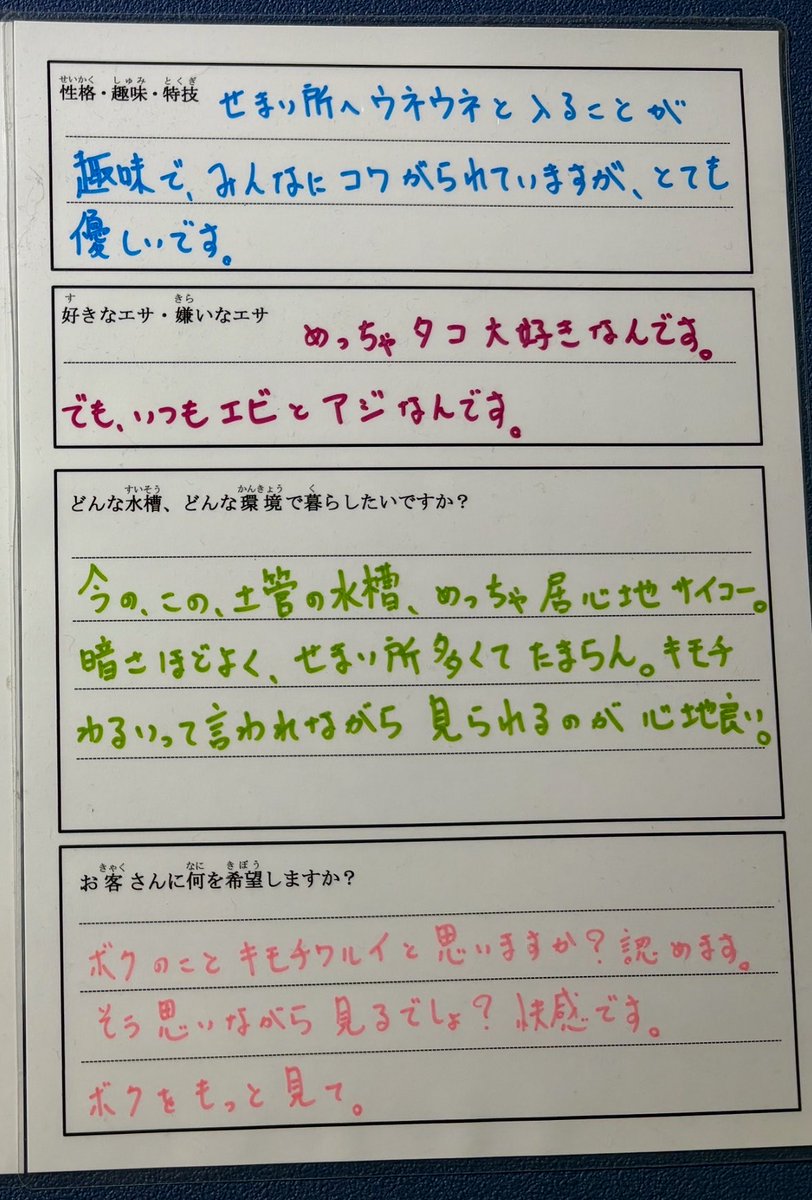 性格・趣味・特技 せまい所へウネウネと入ることが
趣味で、みんなにコワがられていますが、とても
優しいです。
好きなエサ・嫌いなエサ めっちゃタコ大好きなんです。
でも、いつもエビとアジなんです。
どんな水槽、どんな環境で暮らしたいですか？
今の、この、土管の水槽、めっちゃ居心地サイコー。
暗さほどよく、せまい所多くてたまらん。キモチ
わるいって言われながら見られるのが心地良い。
お客さんに何を希望しますか？
ボクのことキモチワルイと思いますか？認めます。
そう思いながら見るでしょ？快感です。
ボクをもっと見て。